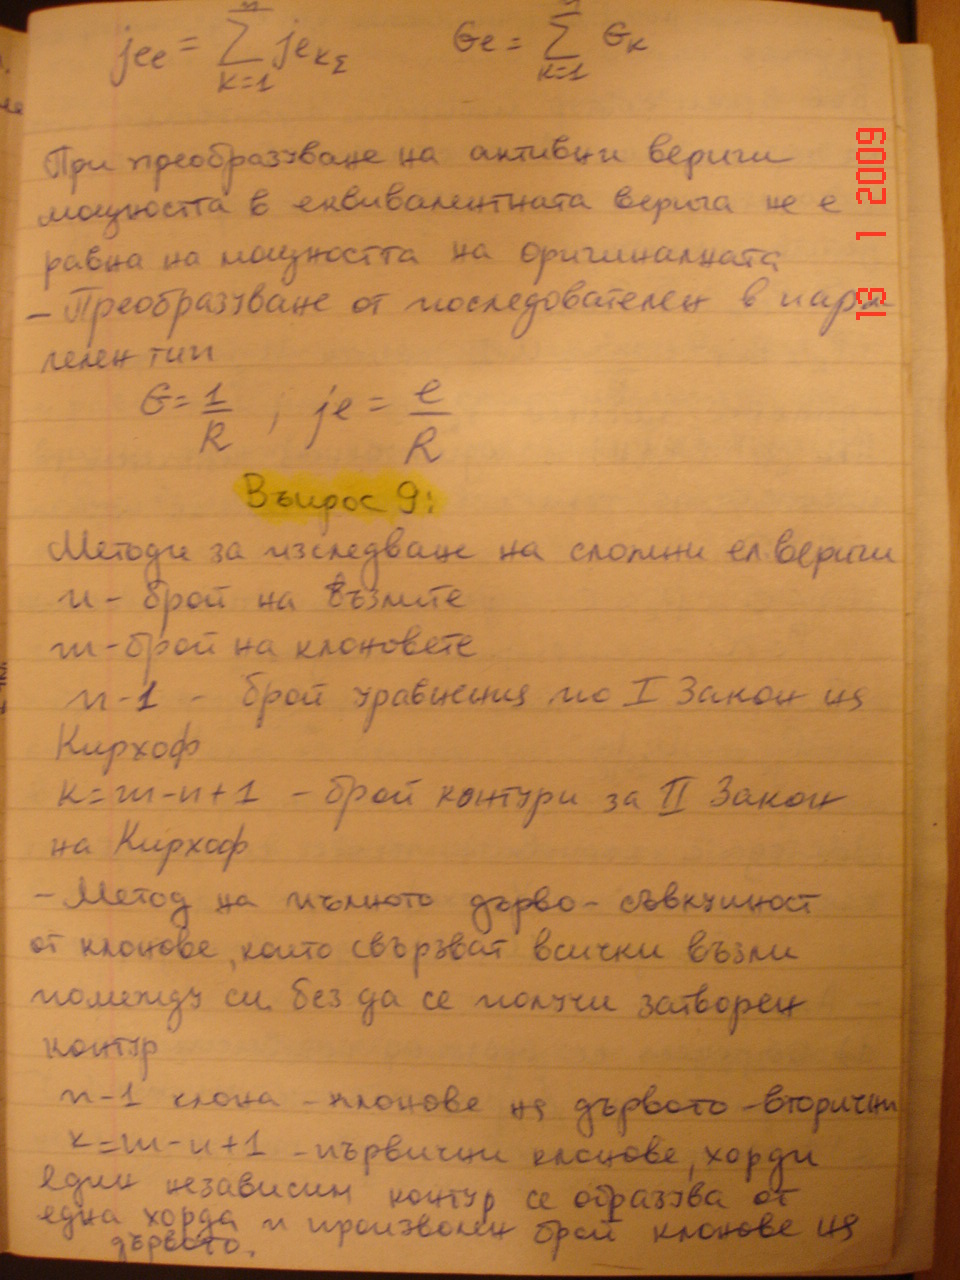 jee = n∑k=1 jekΣ   Ge = n∑k=1 Gk
При преобразуване на активни вериги
мощността в еквивалентната верига не е
равна на мощността на оригиналната
- Преобразуване от последователен в пара
лелен тип
G = 1/R ; je = e/R
Въпрос 9:
Методи за изследване на сложни ел вериги
n - брой на възлите
m - брой на клоновете
n-1 - брой уравнения по I Закон на
Кирхоф
k=m-n+1 - брой контури за II Закон
на Кирхоф
- Метод на пълното дърво - съвкупност
от клонове, които свързват всички възли
помежду си без да се получи затворен
контур
n-1 клона - клонове на дървото - вторични
k=m-n+1 - първични клонове, хорди
Един независим контур се образува от
една хорда и произволен брой клонове на
дървото.
13 1 2009